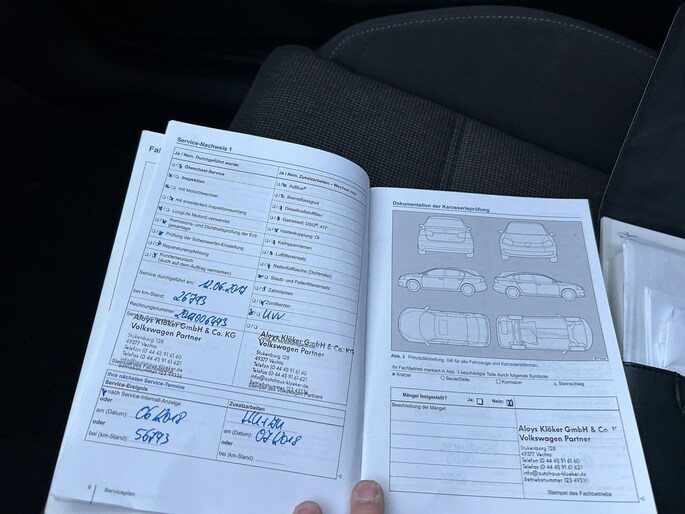 Fal
Service-Nachweis 1
Ja / Nein. Durchgeführt wurde:
Ölwechsel-Service
Inspektion
mit Motorölwechsel
mit erweitertem Inspektionsumfang
LongLife Motoröl verwendet
Korrosions- und Dichtheitsprüfung der Erd-
gasanlage
Prüfung der Scheinwerfer-Einstellung
Reparaturempfehlung
Kundenwunsch
(auch auf dem Auftrag vermerken)
Service durchgeführt am:
bei km-Stand: 26793
Rechnungsnummer:
Aloys Klöker GmbH & Co. KG
Volkswagen Partner
Stukenborg 128
49377 Vechta
Telefon (0 44 41) 91 61 60
Telefax (0 44 41) 91 61 621
info@autohaus-kloeker.de
Ja / Nein. Zusatzarbeiten – Wechsel von:
AdBlue®
Bremsflüssigkeit
Dieselkraftstofffilter
Getriebeöl: DSG®, ATF
Haldexkupplung: Öl
Keilrippenriemen
Luftfiltereinsatz
Staub- und Pollenfiltereinsatz
Zahnriemen
Zündkerzen
Aloys Klöker GmbH & Co. KG
Volkswagen Partner
Stukenborg 128
49377 Vechta
Telefon (0 44 41) 91 61 60
Telefax (0 44 41) 91 61 621
info@autohaus-kloeker.de
Ihre nächsten Service-Termine
Service-Ereignis
nach Service-Intervall-Anzeige
oder
am (Datum): 06.2018
oder
bei (km-Stand): 56793
Zusatzarbeiten
am (Datum): 07.2018
oder
bei (km-Stand):
6 Serviceplan
Dokumentation der Karosserieprüfung
Abb. 3 Prinzipdarstellung: Gilt für alle Fahrzeuge und Karosserieformen.
Ihr Fachbetrieb markiert in Abb. 3 beschädigte Teile durch folgende Symbole:
× Kratzer ○ Beule/Delle □ Korrosion △ Steinschlag
Mängel festgestellt? Ja: Nein:
Beschreibung der Mängel:
Aloys Klöker GmbH & Co.
Volkswagen Partner
Stukenborg 128
49377 Vechta
Telefon (0 44 41) 91 61 60
Telefax (0 44 41) 91 61 621
info@autohaus-kloeker.de
Betriebsnummer 123 49231
Stempel des Fachbetriebs